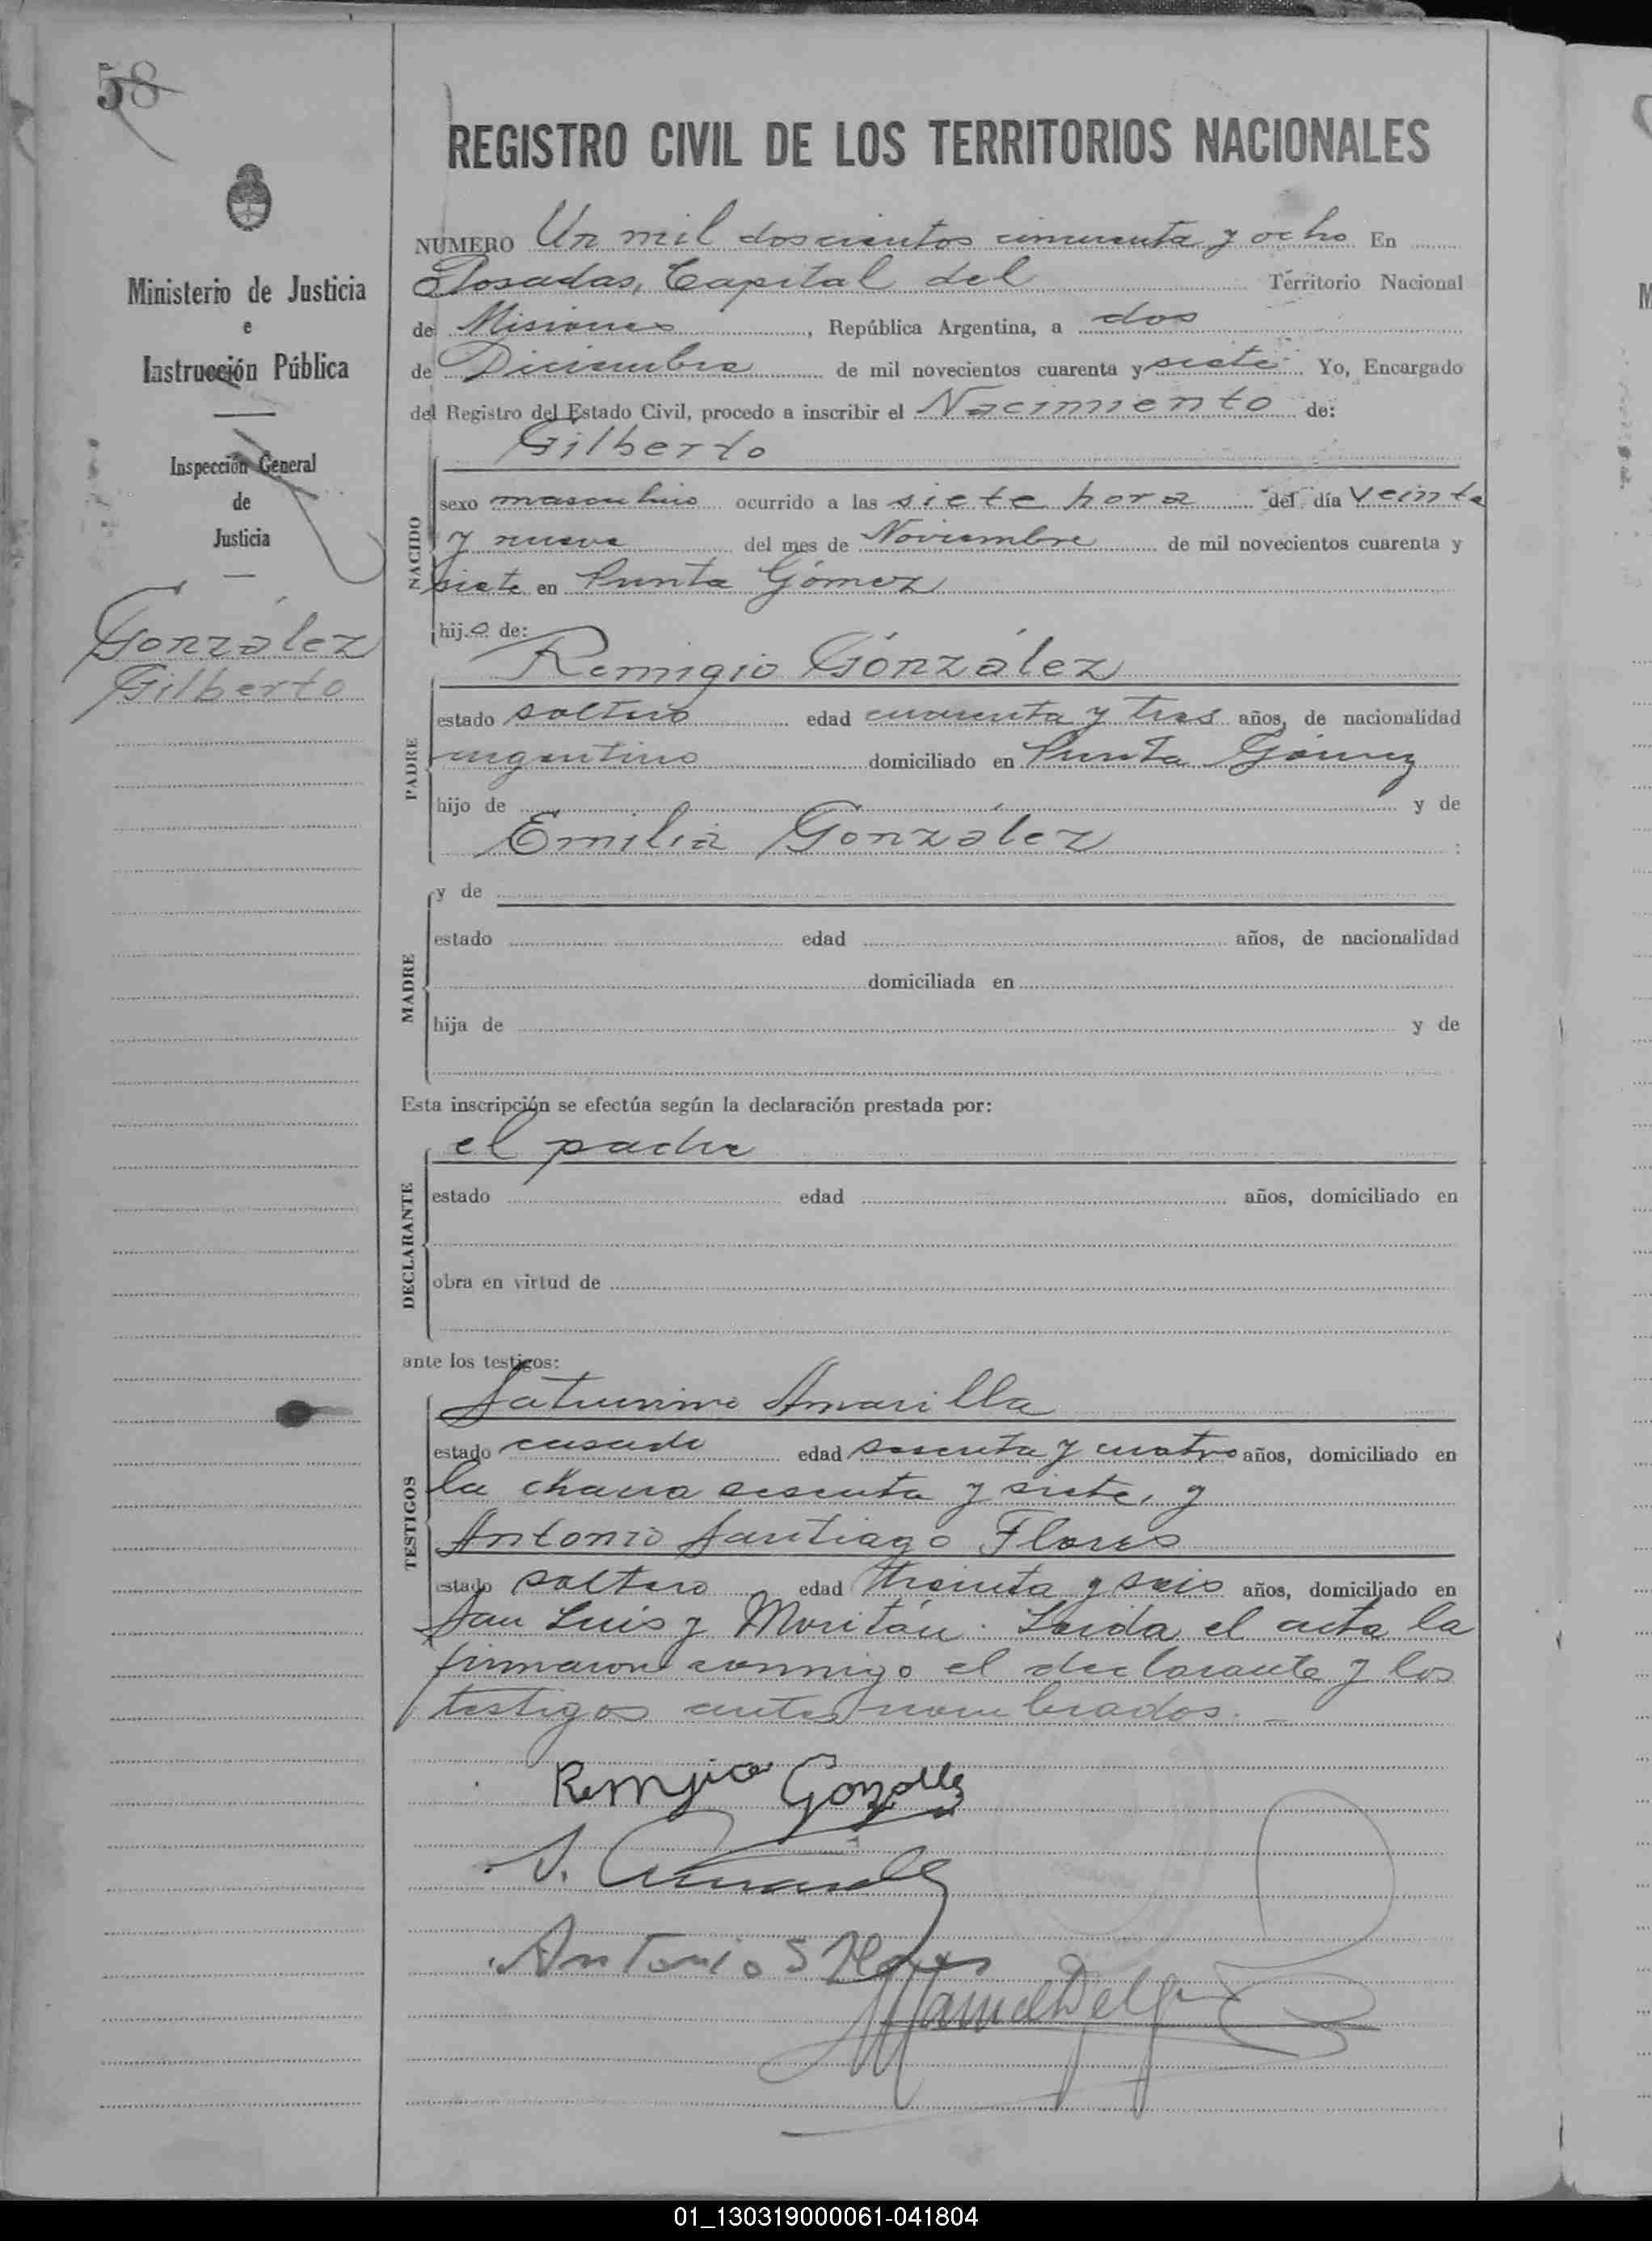 58
REGISTRO CIVIL DE LOS TERRITORIOS NACIONALES
Ministerio de Justicia
e
Instrucción Pública
Inspección General
de
Justicia
González
Gilberto
NUMERO Un mil doscientos cincuenta y ocho En
Posadas, Capital del Territorio Nacional
de Misiones, República Argentina, a dos
de Diciembre de mil novecientos cuarenta y siete Yo, Encargado
del Registro del Estado Civil, procedo a inscribir el Nacimiento de:
Gilberto
NACIDO
sexo masculino ocurrido a las siete hora del día veinte
y nueve del mes de Noviembre de mil novecientos cuarenta y
siete en Punta Gómez
hijo de:
Remigio González
PADRE
estado soltero edad cuarenta y tres años, de nacionalidad
argentino domiciliado en Punta Gómez
hijo de y de
Emilia González
MADRE
y de
estado edad años, de nacionalidad
domiciliada en
hija de y de
Esta inscripción se efectúa según la declaración prestada por:
el padre
DECLARANTE
estado edad años, domiciliado en
obra en virtud de
ante los testigos:
TESTIGOS
Saturnino Amarilla
estado casado edad sesenta y cuatro años, domiciliado en
la chacra sesenta y siete, y
Antonio Santiago Flores
estado soltero edad treinta y seis años, domiciliado en
San Luis y Moritán. Leida el acta la
firmaron conmigo el declarante y los
testigos antes nombrados.
Remijio Gonzalez
S. Amarilla
Antonio S Flores
01_130319000061-041804